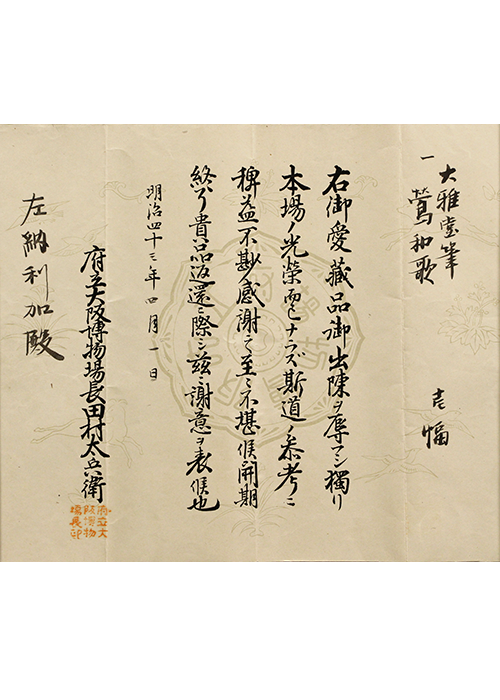 大雅堂筆
一 鶯和歌 壱幅
右御愛蔵品御出陳ヲ辱フシ獨リ
本場ノ光榮而已ナラズ斯道ノ参考ニ
稗益不尠感謝之至ニ不堪候開期
終リ貴品返還ニ際シ茲ニ謝意ヲ表候也
明治四十三年四月一日
府立大阪博物場長田村太兵衛
府立大阪博物場長印
左納利加殿